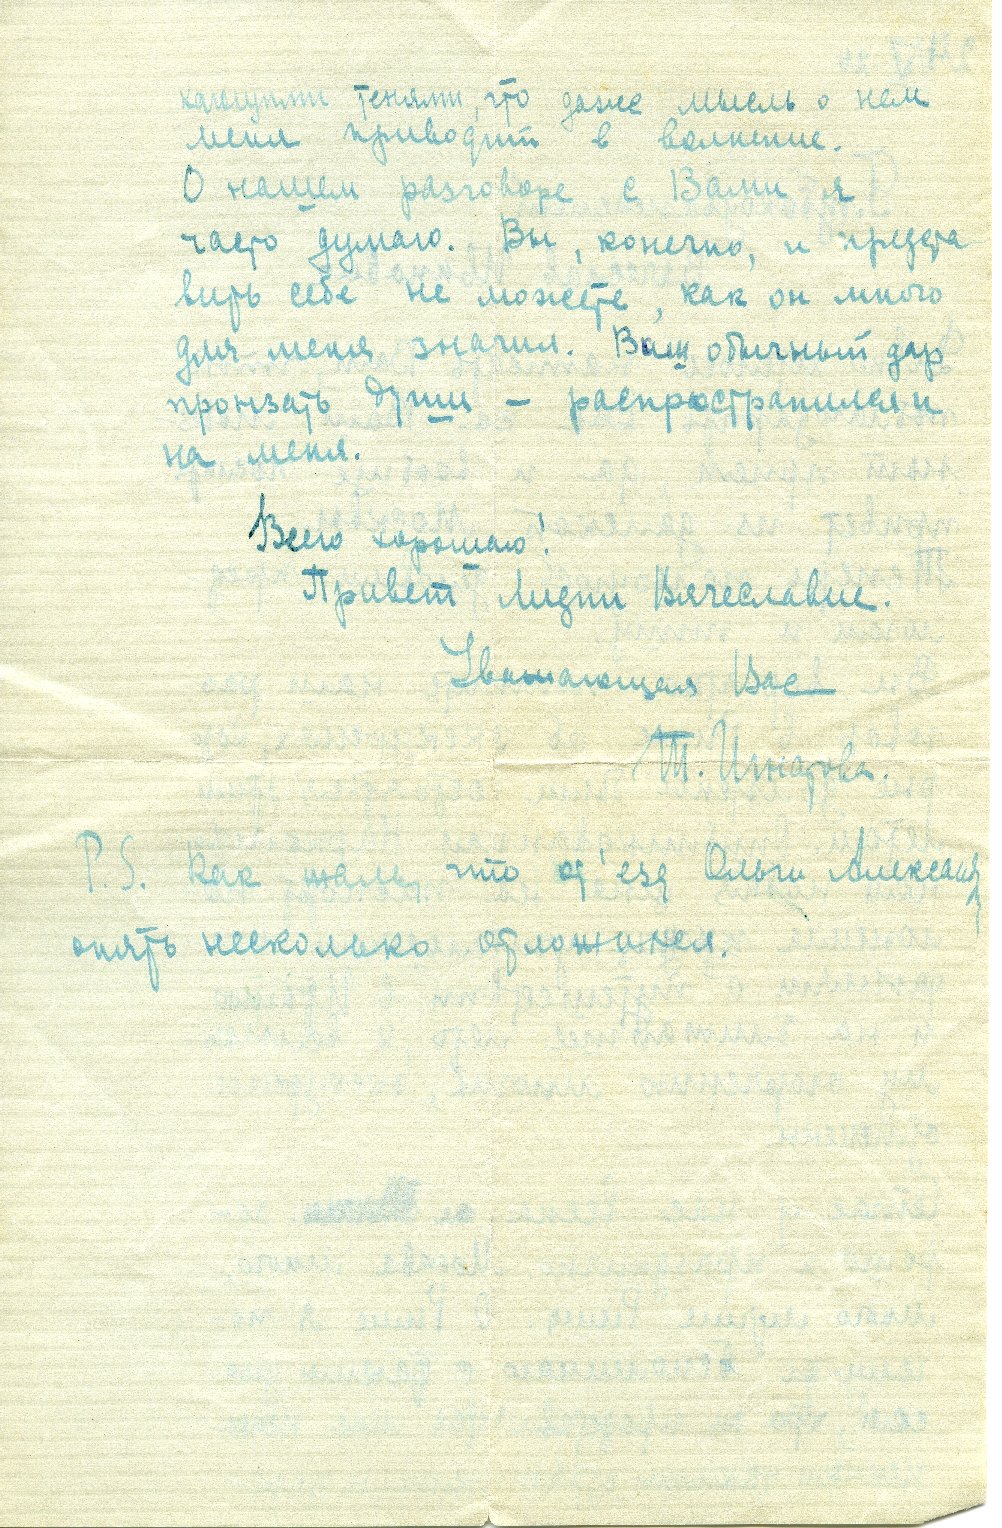 тенями, что даже мысль о нем
меня приводит в волнение.
О нашем разговоре с Вами я
часто думаю. Вы, конечно, и предста
вить себе не можете, как он много
для меня значил. Ваш обычный дар
пронзать души – распространился и
на меня.
Всего хорошаго!
Привет Лидии Вячеславне.
Уважающая Вас
Т. Игнатова.
P.S. Как жаль, что от'езд Ольги Александ
опять несколько отложился.